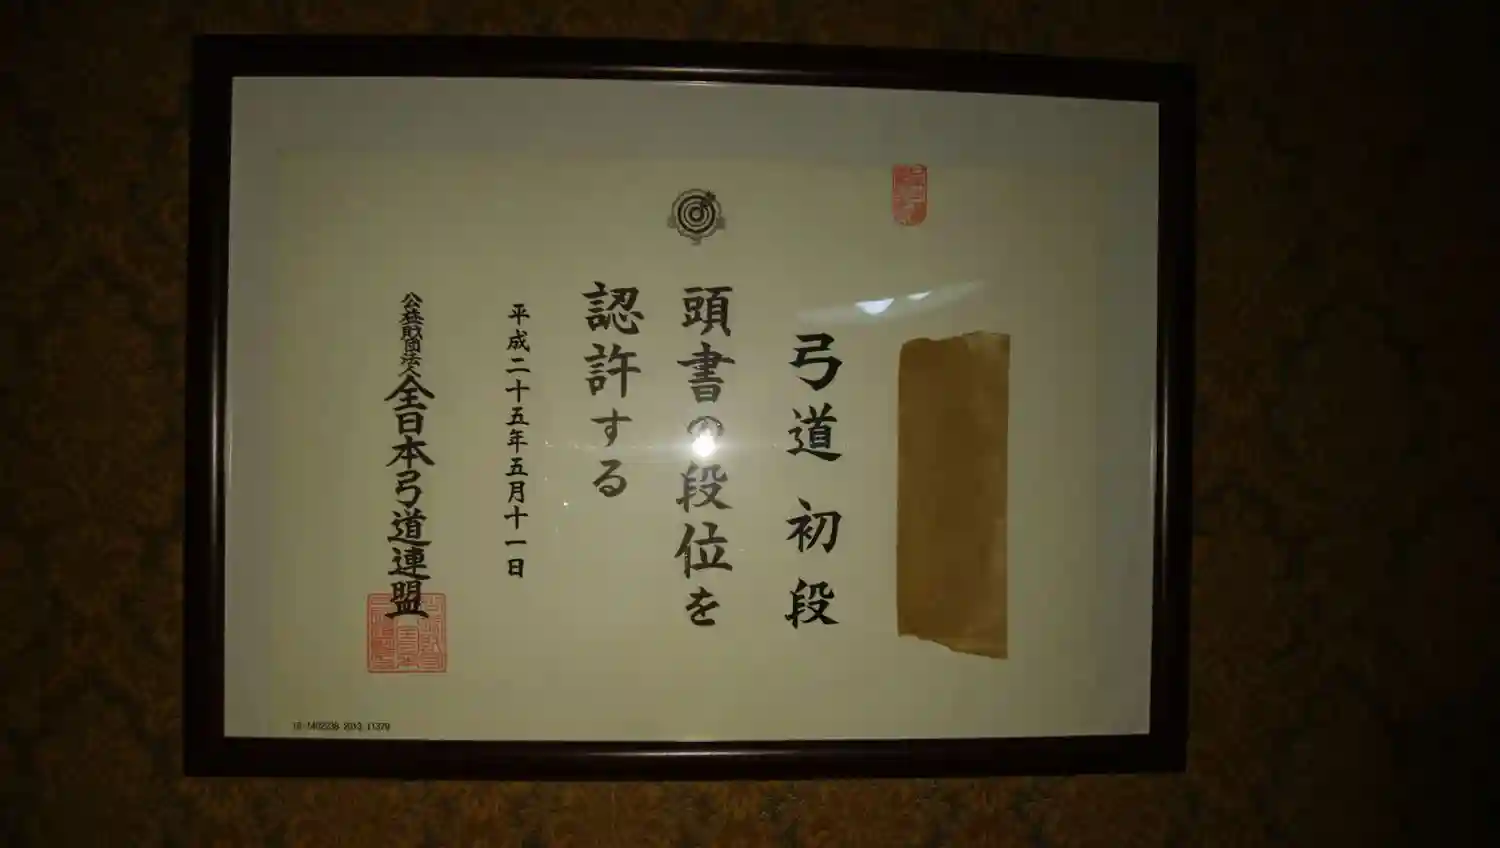 弓道 初段
頭書の段位を
認許する
平成二十五年五月十一日
公益財団法人全日本弓道連盟